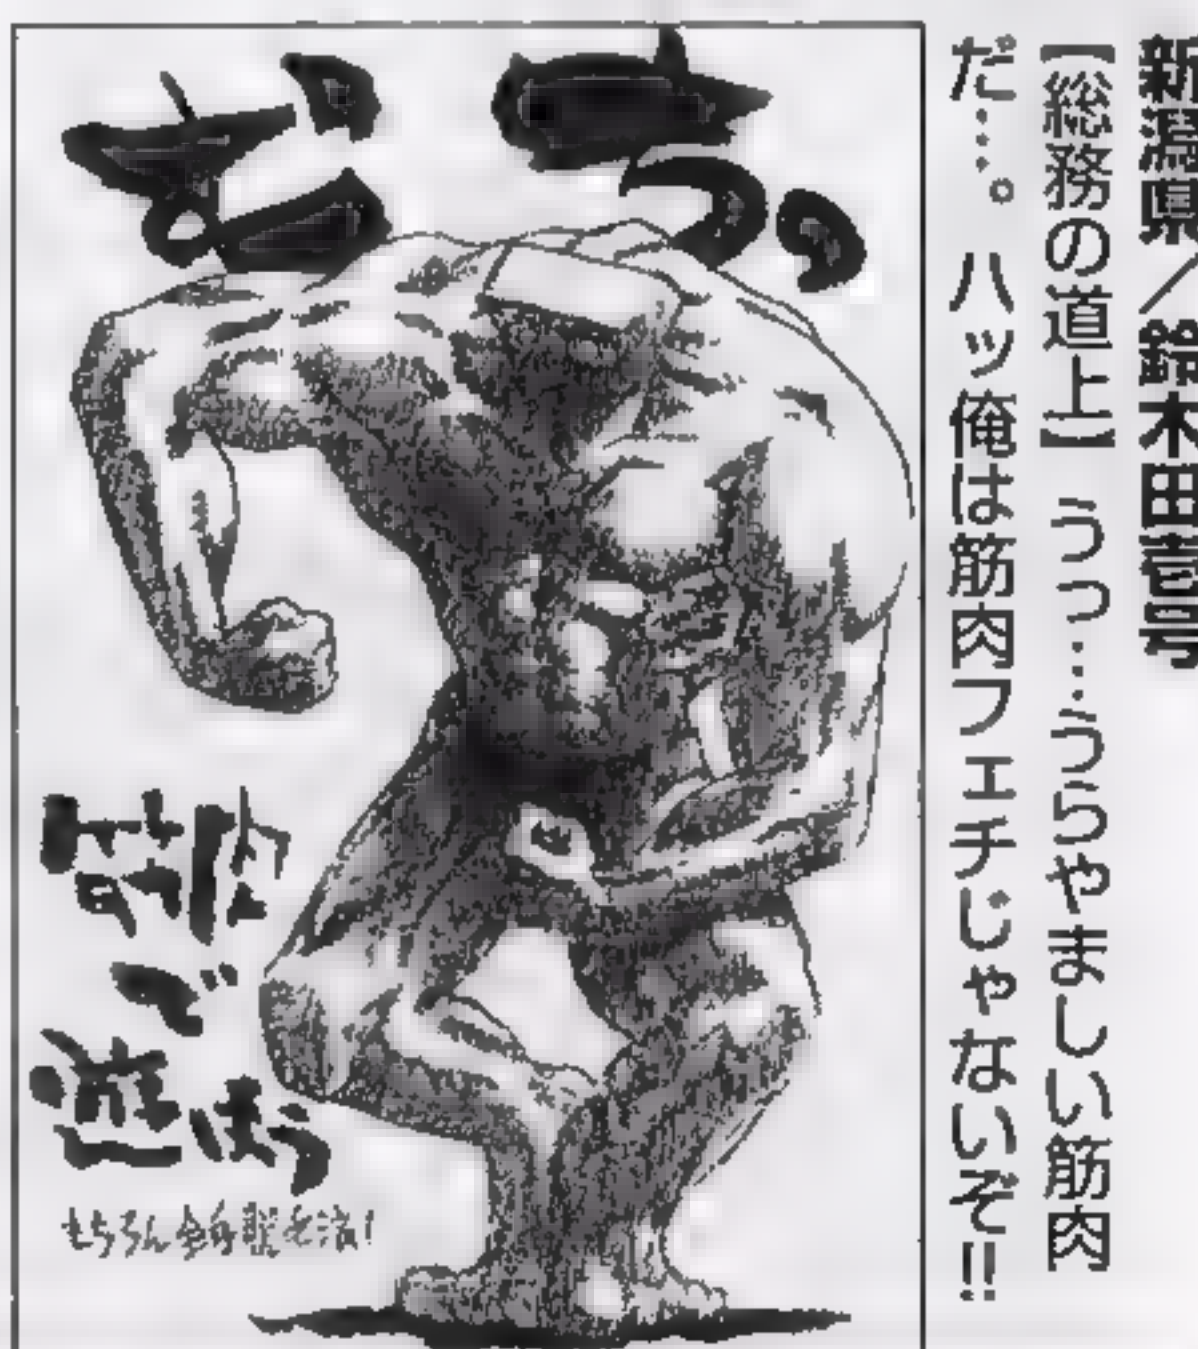 新潟県／鈴木田壱号
【総務の道上】うっ…うらやましい筋肉
だ…。ハッ俺は筋肉フェチじゃないぞ!!
うっ
で
遊ぼう
もちろん全身脱毛済!